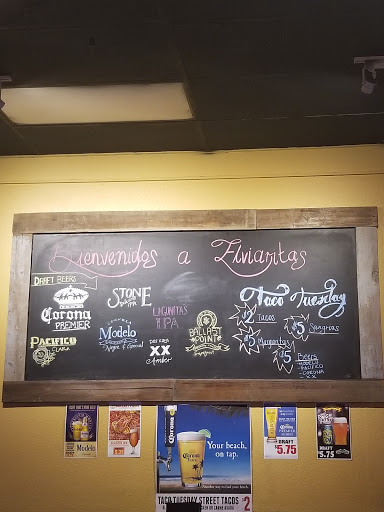 Bienvenidos a Elviaritas
DRAFT BEERS
Corona
PREMIER
PACIFICO
CLARA
STONE
IPA
Modelo
Negra & Especial
LAGUNITAS
IPA
DOS EQUIS
XX
Amber
BALLAST
POINT
Taco Tuesday
$2 Tacos
$5 Margaritas
$5 Sangrias
$5 Beers
-MODELO
-PACIFICO
-CORONA
-XX
Modelo
Corona
Your beach,
on tap.
TACO TUESDAY STREET TACOS
OR CARNE ASADA
$2
DRAFT
$5.75
DRAFT
$5.75